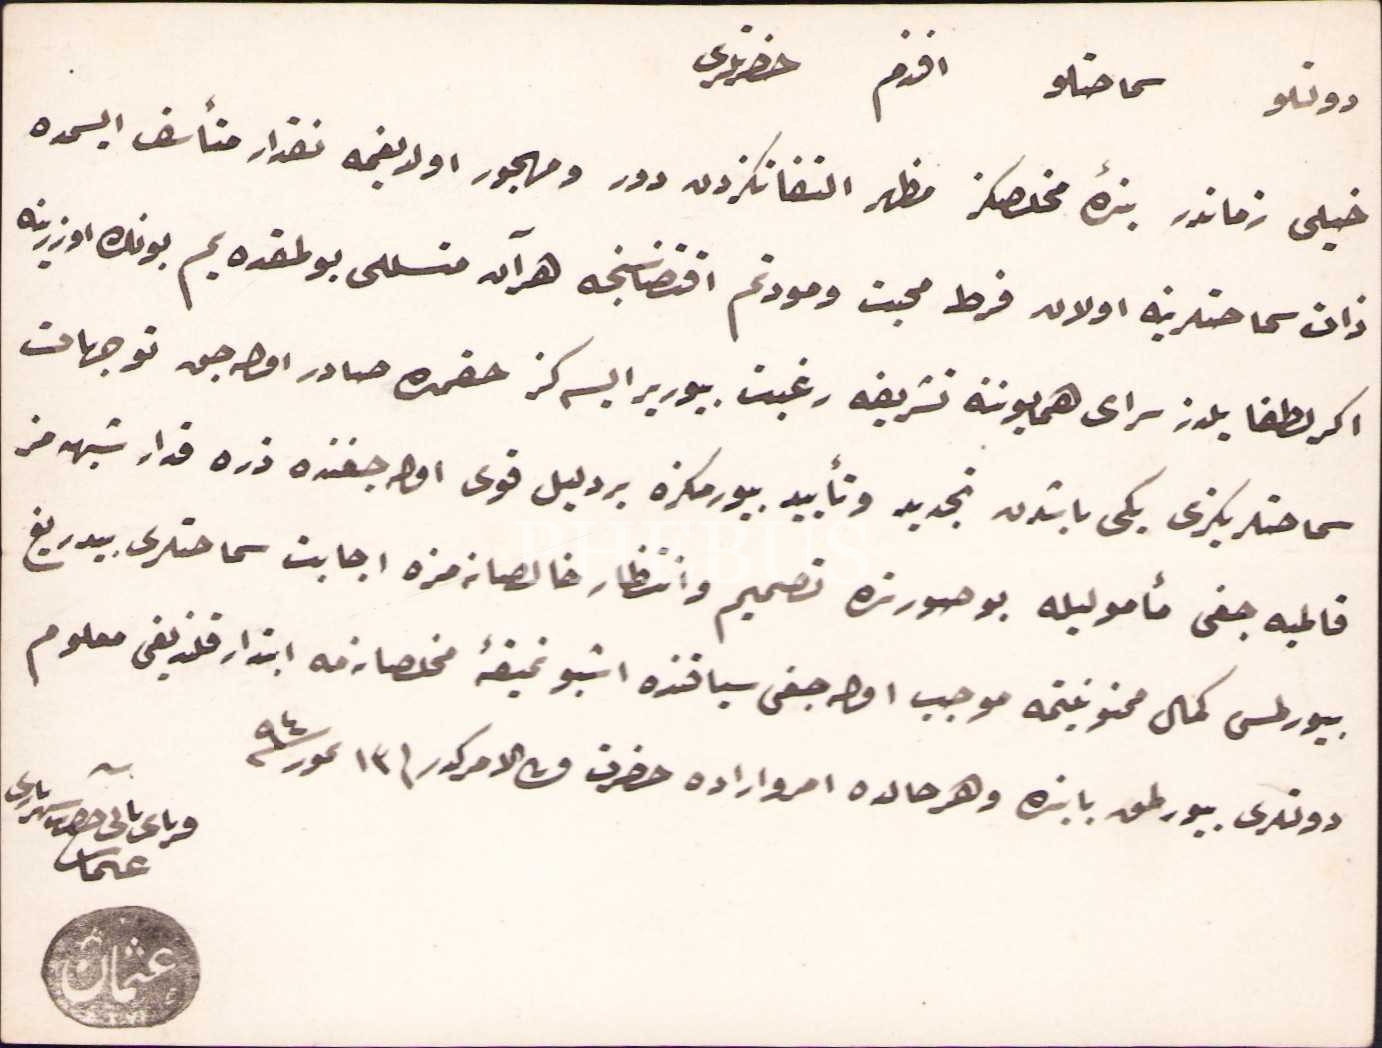 دولتلو سماحتلو افندم حضرتلری
خیلی زماندر بندۀ مخلصکز مظهر التفاتکزدن دور و مهجور اولدیغمه نقدار متأسف ایسه‌مده
ذات سماحتلرینه اولان فرط محبت و مودتم اقتضاسنجه هرآن متسللی بولمقده‌یم بونك اوزرینه
اکر لطفا یلدز سرای همایوننه تشریفه رغبت بیوریر ایسه‌کز حقمده صادر اوله‌جق توجهات
سماحتلریکزی یکی باشدن تجدید و تأیید بیورمکزه بر دلیل قوی اوله‌جغنده ذره قدار شبهه‌مز
قالمیه‌جغی مأمولیله بو صورتده تصمیم و انتظار خالصانه‌مزه اجابت سماحتلری بیدریغ
بیورلمسی کمال ممنونیتمه موجب اوله‌جغی سیاقنده اشبو نمیقۀ مخلصانه‌مه ابتدار قلندیغی معلوم
دولتلری بیورلمق بابنده و هرحالده امر و اراده حضرت من له الامرکدر فی ١٣ تموز سنه ٩٤
قرنای حضرت شهریاری
عثمان
عثمان
PHEBUS